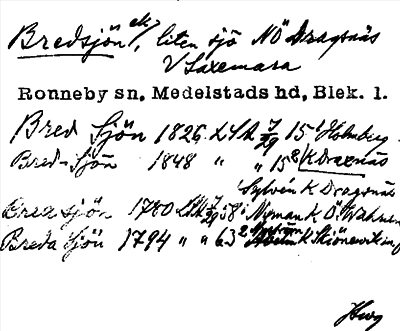 Bredsjön ek/, liten sjö NÖ Dragsnäs
V Saxemara
Ronneby sn, Medelstads hd, Blek. l.
Bred Sjön 1826 LSA 7/29 15¹ Holmberg
Bred-Sjön 1848 " " 15⁸ K Dragsnäs
Sylvén K Dragsnäs
Breda sjön 1780 LSA 7/29 58¹ Nyman K Ö.
Breda Sjön 1794 " " 63²